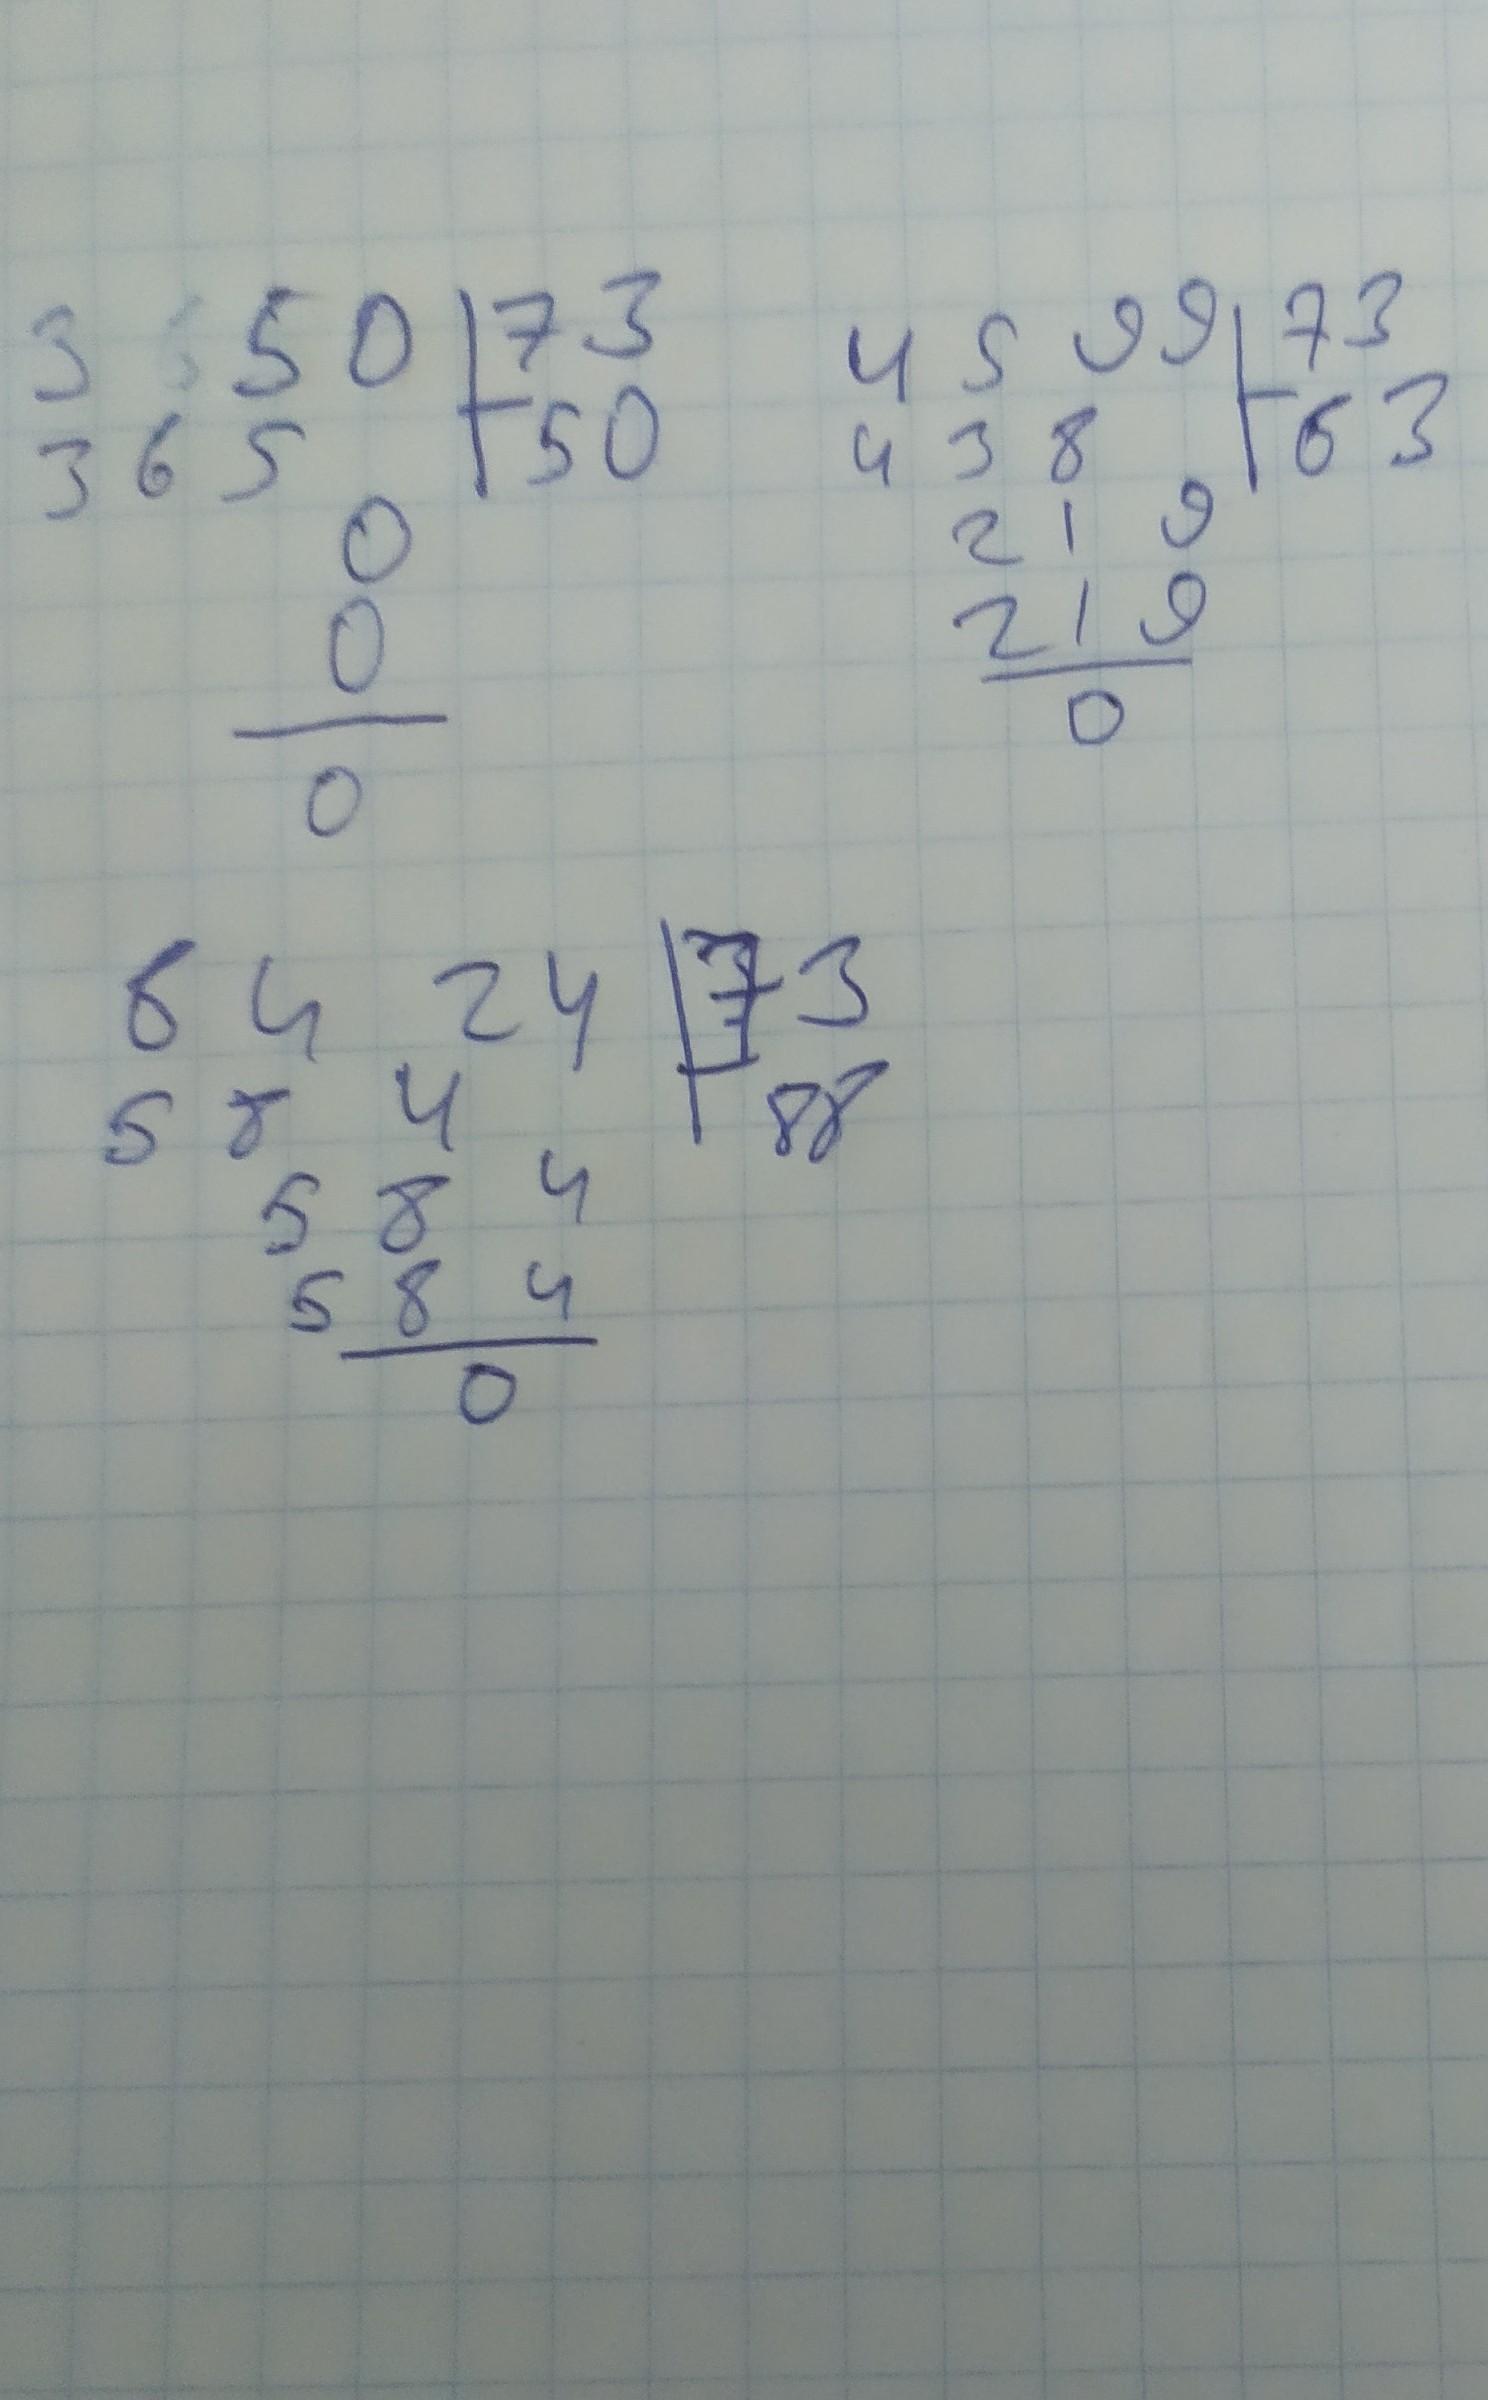 3 6 5 0 73
3 6 5 50
0
0
0
4 5 9 9 73
4 3 8 63
2 1 9
2 1 9
0
6 4 2 4 73
5 8 4 88
5 8 4
5 8 4
0